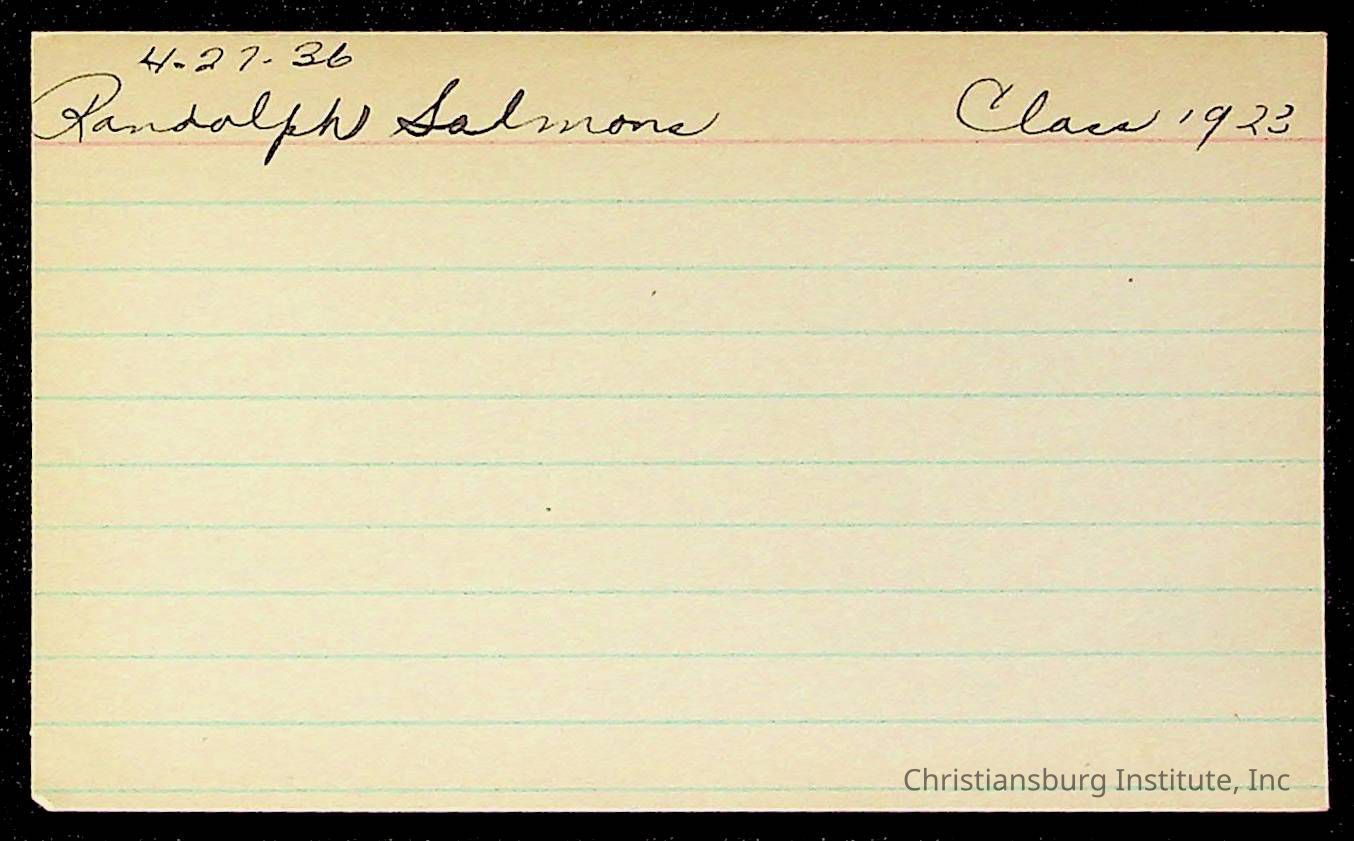 4-27-36
Randolph Salmons Class 1923
Christiansburg Institute, Inc